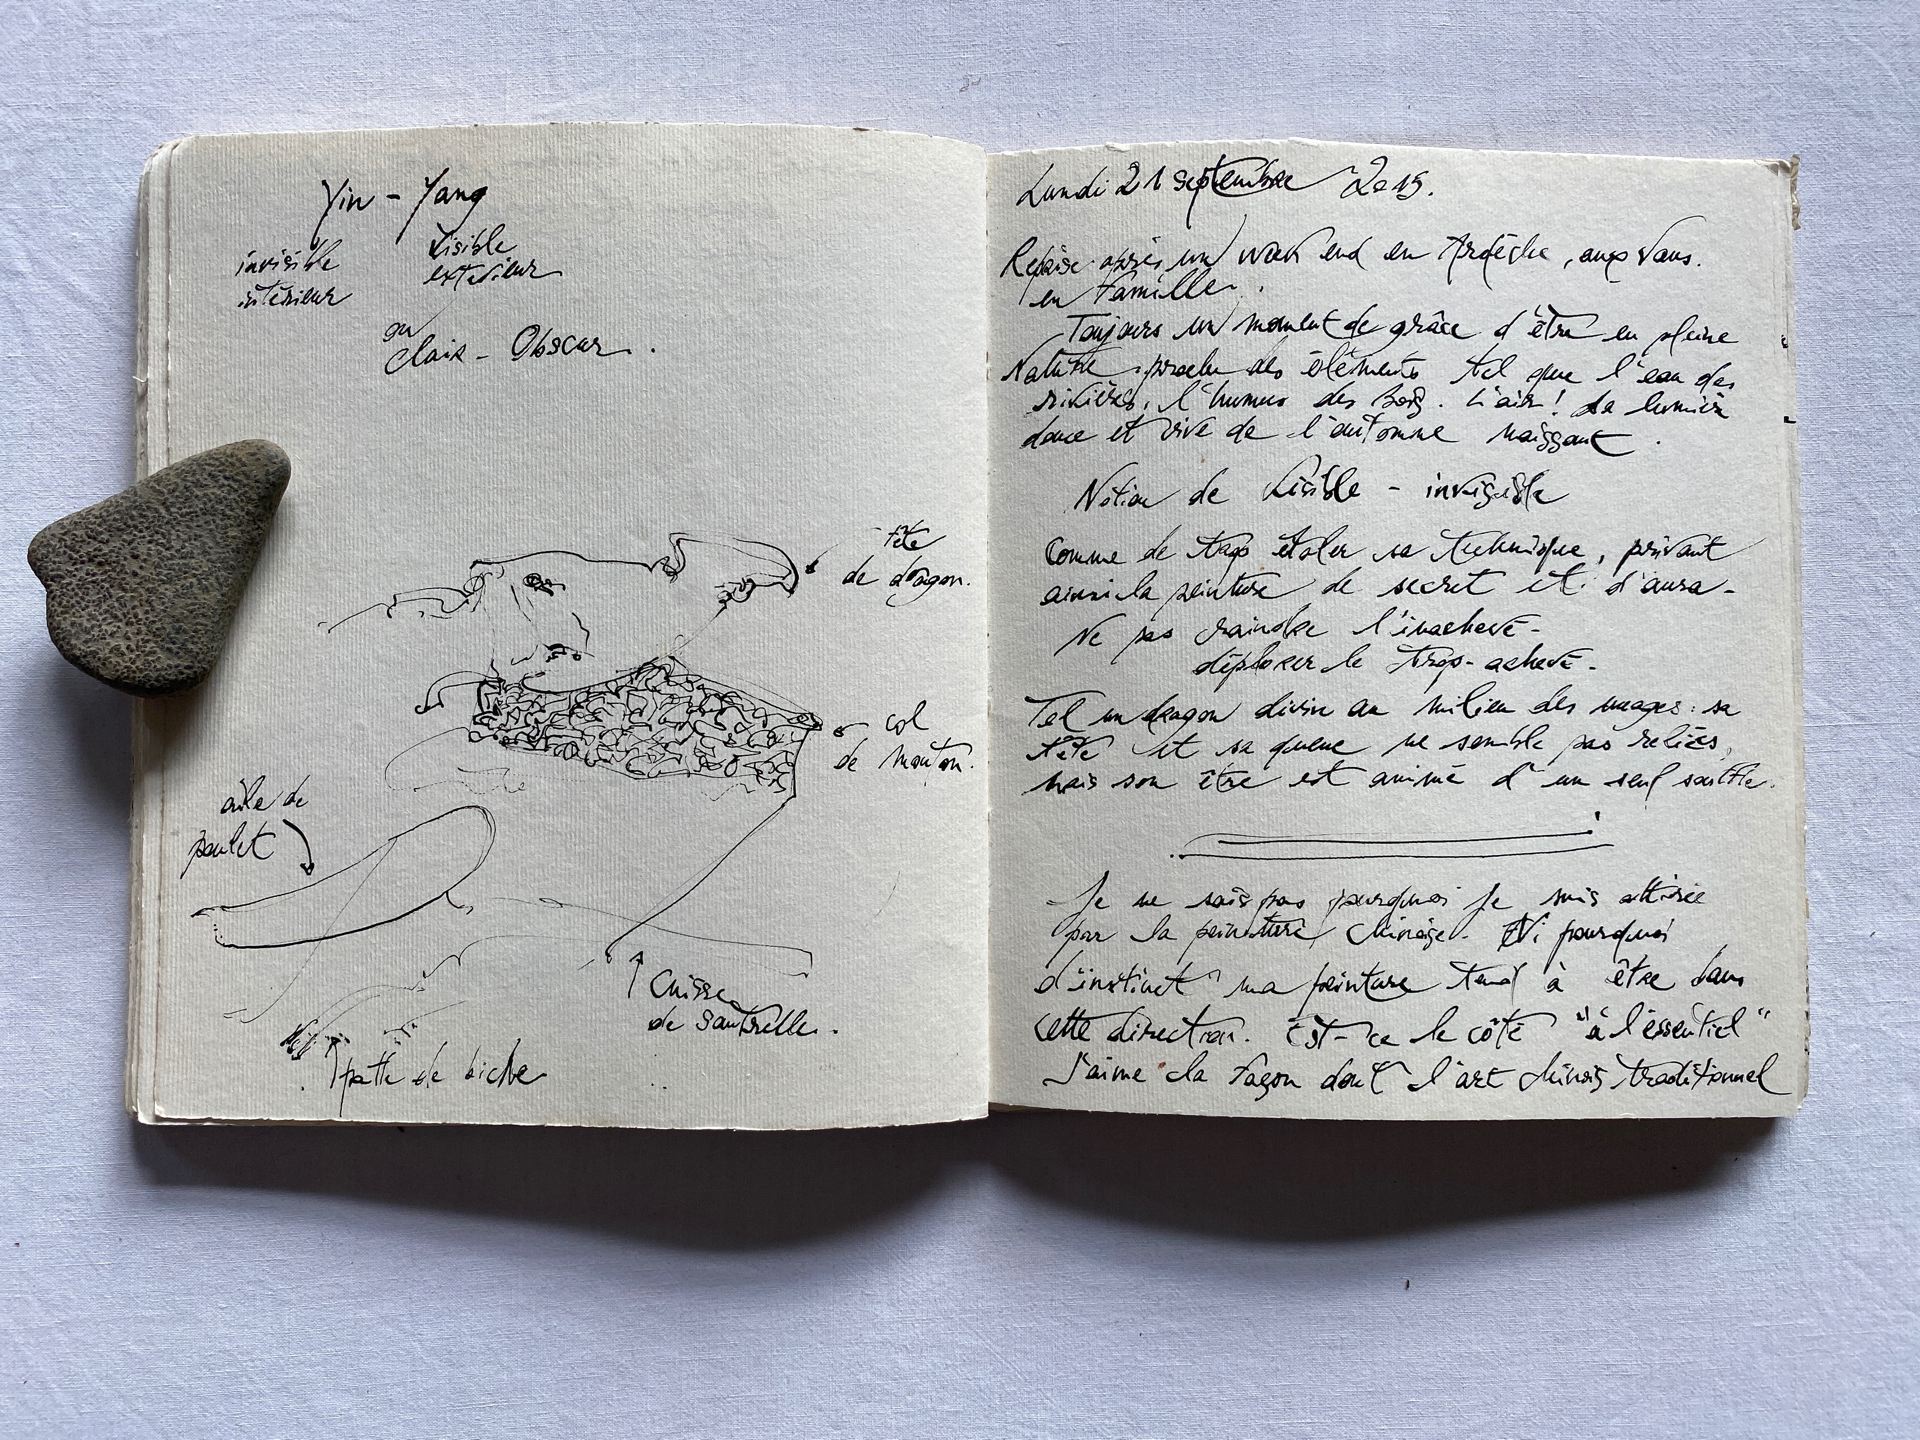 Yin - Yang
invisible visible
intérieur extérieur
ou
Clair - Obscur.
tête
de dragon.
col
de mouton.
aile de
poulet
Cuisse
de Sauterelle.
patte de biche
Lundi 21 Septembre 2015.
Reprise après un week end en Ardèche, aux Vans.
en famille.
Toujours un moment de grâce d'être en pleine
Nature, proche des éléments tel que l'eau des
rivières, l'humus des Bois. L'air! La lumière
douce et vive de l'automne naissant.
Notion de Visible - invisible
Comme de trop étaler sa technique, privant
ainsi la peinture de secret et d'aura -
Ne pas craindre l'inachevé -
déplorer le trop-achevé -
Tel un dragon divin au milieu des nuages : sa
tête et sa queue ne semble pas reliés,
mais son être est animé d'un seul souffle.
Je ne sais pas pourquoi je suis attirée
par la peinture Chinoise - Ni pourquoi
d'instinct ma peinture tend à être dans
cette direction. Est-ce le côté "à l'éssentiel"
J'aime la façon dont l'art chinois traditionnel